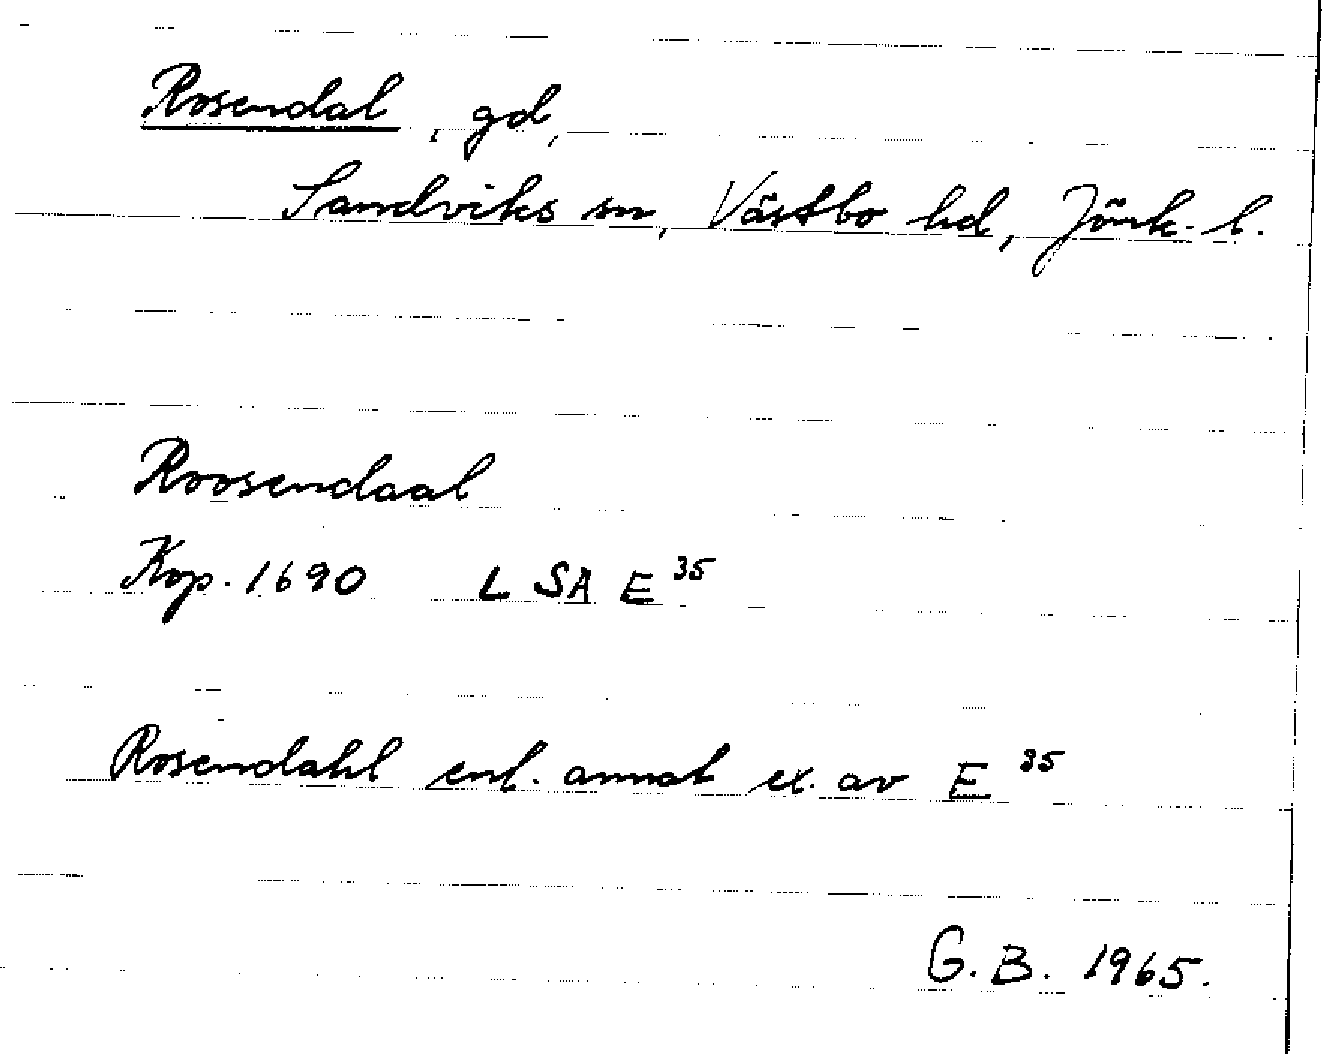 Rosendal, gd,
Sandviks sn, Västbo hd, Jönk. l.
Roosendaal
Kop. 1690 L SA E 35
Rosendahl enl. annat ex. av E 35
G.B. 1965.